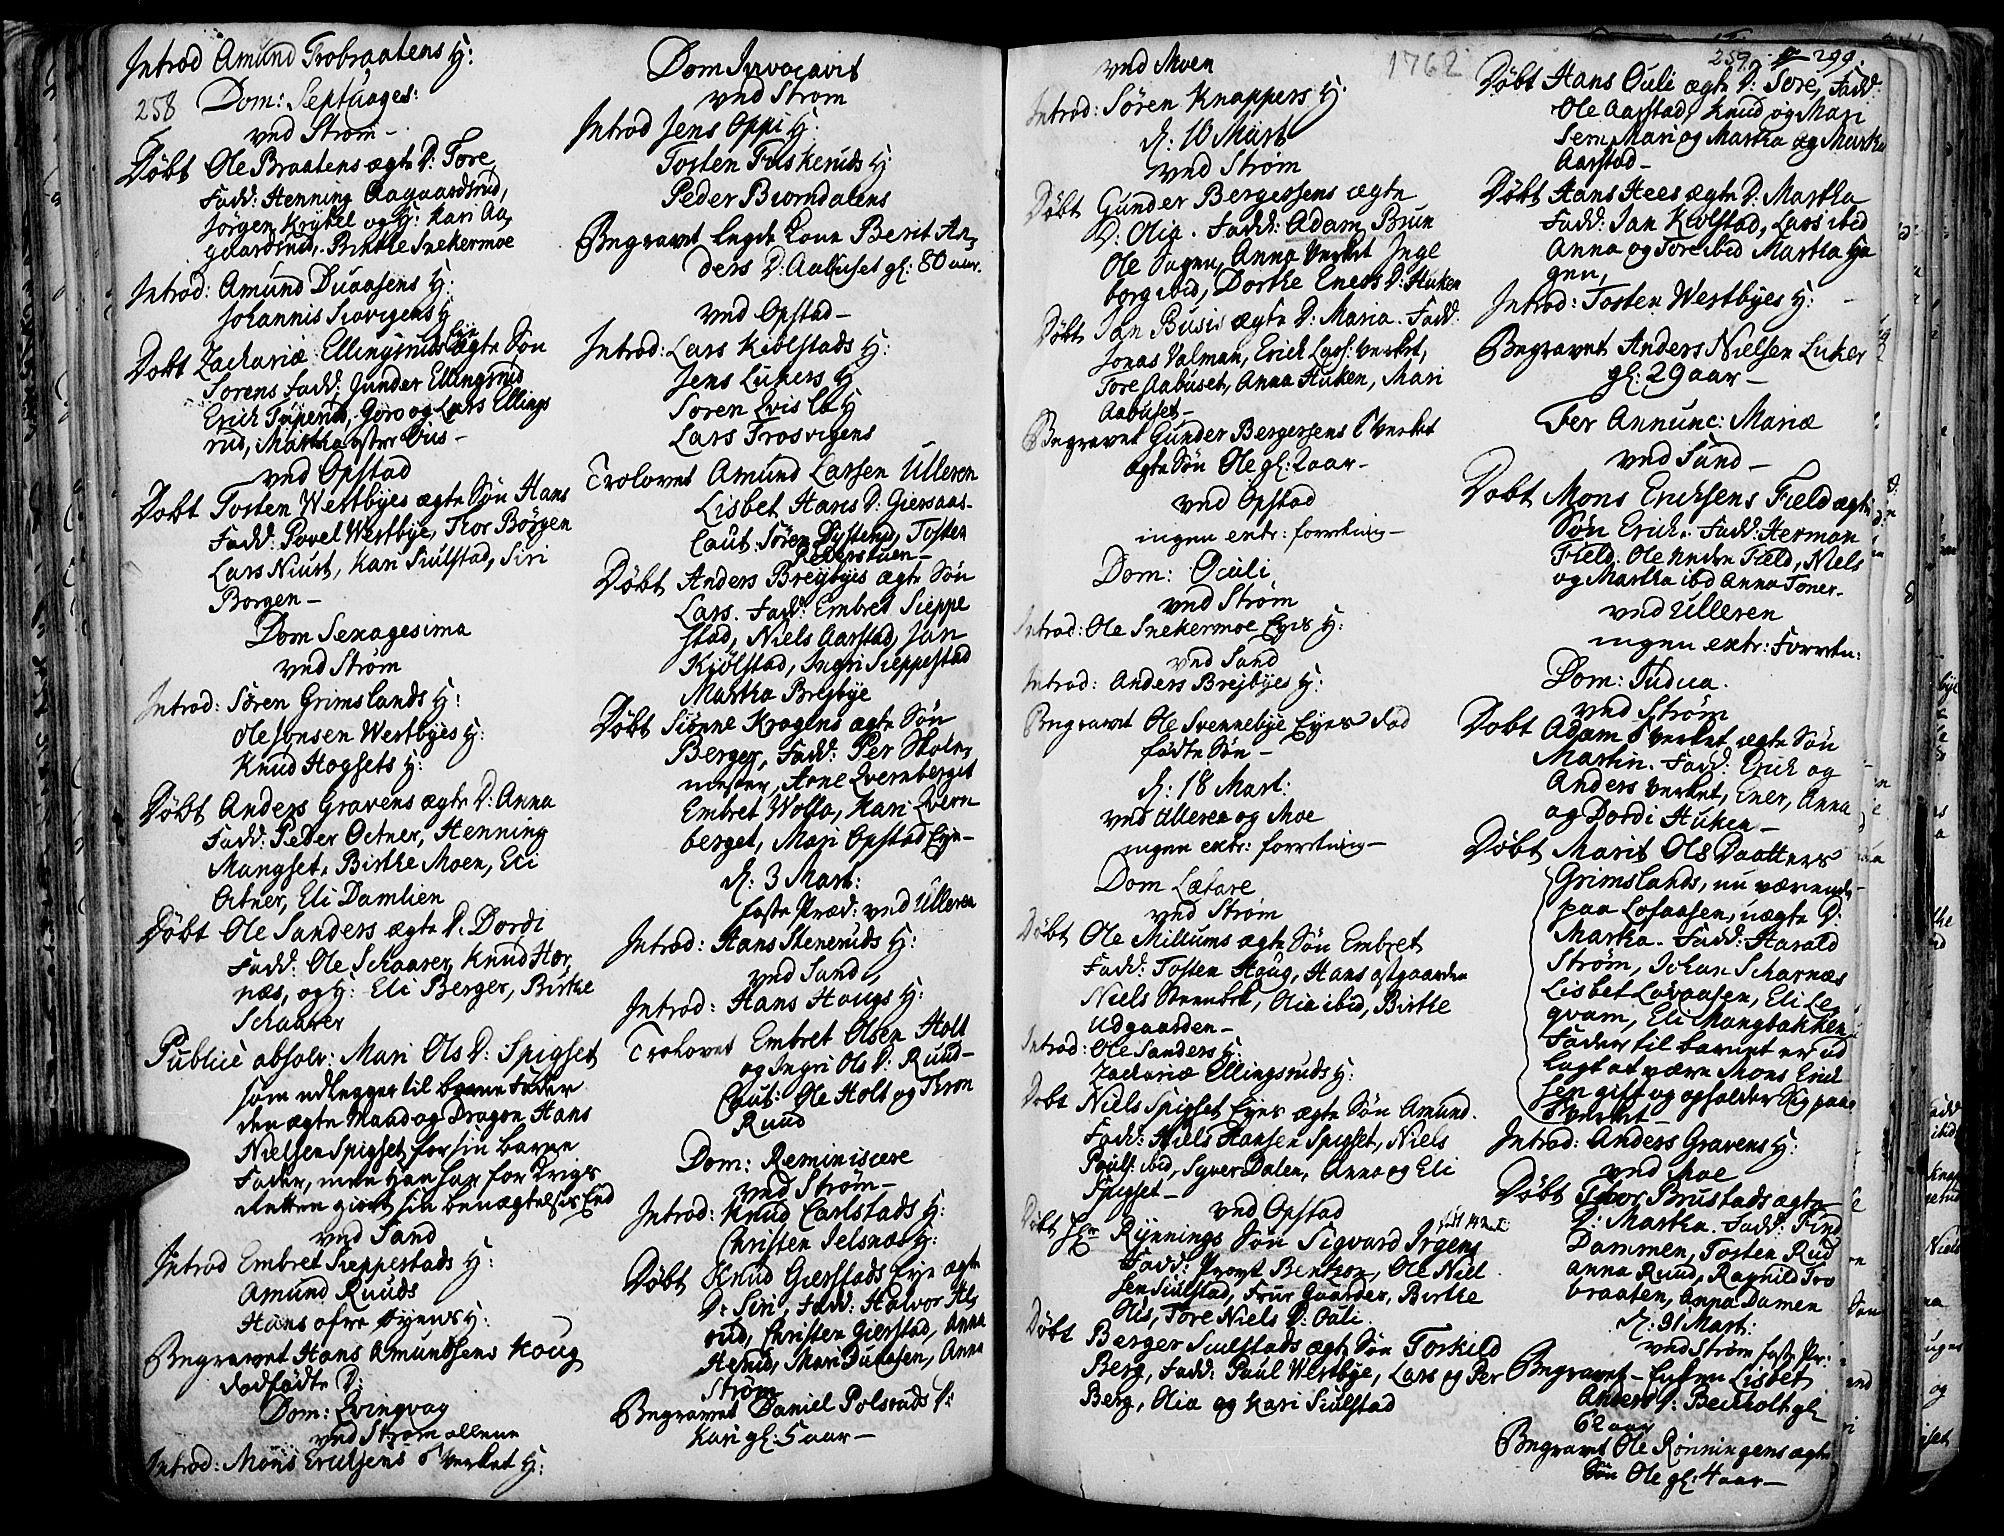 Introd Amund Trobraatens H:
258 Dom: Septuages:
ved Strøm -
Døbt Ole Braatens ægte D: Tore
Fadd: Henning Aagaardsrud,
Jørgen Krykel og H: Kari Aa,
gaardsrud, Birthe Snekermoe
Introd: Amund Duaasens H:
Johannis Skovigens H
Døbt Zachariæ Ellingsruds Eje ægte Søn
Sørens Fadd: Gunder Ellingsrud
Erich, Gøro og Lars Ellings
rud, Martha
ved Opstad
Døbt Tosten Westbyes ægte Søn Hans
Fadd: Povel Westbye, Thor Børgen
Lars Niust, Kari Siulstad, Siri
Borgen -
Dom Sexagesima
ved Strøm
Introd: Søren Grimslands H:
Ole Jonsen Westbyes H:
Knud Hogsets H:
Døbt Anders Gravens ægte D: Anna
Fadd: Peder Ørtner, Henning
Mangset, Birthe Moen, Eli
Ørtner, Eli Damlien
Døbt Ole Sanders ægte D. Dordi
Fadd: Ole Schaarer, Knud Hor,
næs, og H: Eli Berger, Birthe
Schaarer
Publicè absolv: Mari Ols D: Spigset
som udlegger til barne Fader
den ægte Maad og Dragon Hans
Nielsen Spigset for sin barne
Fader, men han har for Krigs
Retten giort sin benægtelses Eed
ved Sand
Introd Embret Sieppestads H:
Amund Ruuds
Hans øfre Øyens H:
Begravet Hans Amundsens Houg
dødfødte D:
Dom: Qvingvag
ved Strøm allene
Introd: Mons Erichsens verket H:
Dom Invocavit
ved Strøm
Introd Jens Oppi H:
Tosten Fuskeruds H:
Peder Biørndalens
Begravet Legds Kone Berit An,
ders D: Aabuset gl: 80 aar.
ved Opstad -
Introd: Lars Kiølstads H:
Jens Lukers H
Søren Qvisla H
Lars Frosvigens
Trolovet Amund Larsen Ulleren
Lisbet Hans D: Giersaas-
Caut: Søren Dysterud, Tosten
Pederstuen -
Døbt Anders Brejbyes ægte Søn
Lars. Fadd: Embret Sieppe
stad, Niels Aarstad, Jan
Kjølstad, Ingri Sieppestad
Martha Brejbye
Døbt Siønne Krogens ægte Søn
Berger, Fadd: Per Skole,
mester, Arne Qvernberget
Embret Wolla, Kari Qvern
berget, Mari Opstad Eye -
d: 3 Mart:
faste Præd: ved Ulleren
Introd: Hans Steneruds H:
ved Sand
Introd: Hans Hougs H:
Trolovet Embret Olsen Holt
og Ingri Ols D: Ruud -
Caut: Ole Holt og Thron
Ruud
Dom: Reminiscere
ved Strøm -
Introd: Knud Carlstads H:
Christen Selsnæs H:
Døbt Knud Gierstads Eye ægte
D: Siri, Fadd: Halvor Al,
rud, Christen Gierstad, Anna
Hernid, Mari Duaasen, Anna
Strøm
Begravet Daniel Polsruds D:
Kari gl: 5 aar -
ved Moen
1762
Introd: Søren Knappers H:
d: 10 Mart
ved Strøm
Døbt Gunder Bergersens ægte
D: Olia. Fadd: Adam Brun
Ole Sagen, Anna Verket Inge
borg ibid, Dorthe Eners D: Huken
Døbt Jan Busis ægte D: Maria. Fadd:
Jonas Valman, Erich Lars: verket,
Tore Aabuset, Anna Huken, Mari
Aabuset -
Begravet Gunder Bergersens verket
ægte Søn Ole gl: 2 aar -
ved Opstad
ingen extr: forretning -
Dom: Oculi
ved Strøm
Introd: Ole Snekermoe Eyes H:
ved Sand
Introd: Anders Brejbyes H:
Begravet Ole Svennebye Eyes død
fødte Søn -
d: 18 Mart:
ved Ulleren og Moe
ingen extr: forretning -
Dom Lætare
ved Strøm
Døbt Ole Millums ægte Søn Embret
Fadd: Tosten Houg, Hans Østgaarden
Niels, Olia ibid, Birthe
Udgaarden -
Introd: Ole Sanders H:
Zachariæ Ellingsruds H:
Døbt Niels Spigset Eyes ægte Søn Amund.
Fadd: Niels Hansen Spigset, Niels
Pouls: ibid, Syver Dalen, Anna og Eli
Spigset -
ved Opstad
Døbt Hr Rynnings Søn Sigvard Irgens
Fadd: Provst Bentzon, Ole Niel
sen Siulstad, Frue Gaarder, Birthe
Ols, Tore Niels D: Ouli.
Døbt Berger Siulstads ægte Søn Torkild
Berg, Fadd: Paul Westbye, Lars og Per
Berg, Olia og Kari Siulstad
259. 299.
Døbt Hans Ouli ægte D: Tore, Fadd:
Ole Aarstad, Knud og Mari
Sem, Mari og Martha og Martha
Aarstad -
Døbt Hans Hees ægte D: Martha
Fadd: Jan Kiølstad, Lars ibid
Anna og Tore ibid Martha Ha
gen,
Introd: Tosten Westbyes H: -
Begravet Anders Nielsen Luker
gl: 29 aar -
Fer Annunc: Mariæ
ved Sand -
Døbt Mons Erichsens Field ægte
Søn Erich. Fadd: Herman
Field, Ole Nedre Field, Niels
og Martha ibd Anna Toner.
ved Ulleren
ingen extr: Forretn:
Dom: Judica.
ved Strøm
Døbt Adam verket ægte Søn
Martin. Fadd: Erich og
Anders verket, Ener, Anna
og Dordi Huken -
Døbt Marit Ols Daatters
Grimslands, nu værende
paa Lofaasen, uægte D:
Martha. Fadd: Harald
Strøm, Johan Scharnæs
Lisbet Lovaasen, Eli Le
qvam, Eli Mangbakken
Fader til barnet er ud
lagt at være Mons Erich
sen gift og opholder sig paa
verket -
Introd: Anders Gravens H:
ved Moe
Døbt Thor Brustads ægte
D: Martha. Fadd: Find
Dammen, Tosten Rud
Anna Ruud, Ragnild Tro
braaten, Anna Damen
d: 31 Mart:
ved Strøm faste Pr:
Begravet - Enken Lisbet
Anders D: Beckholt gl:
62 aar
Begravet Ole Rønningens ægte
Søn Ole gl: 4 aar -